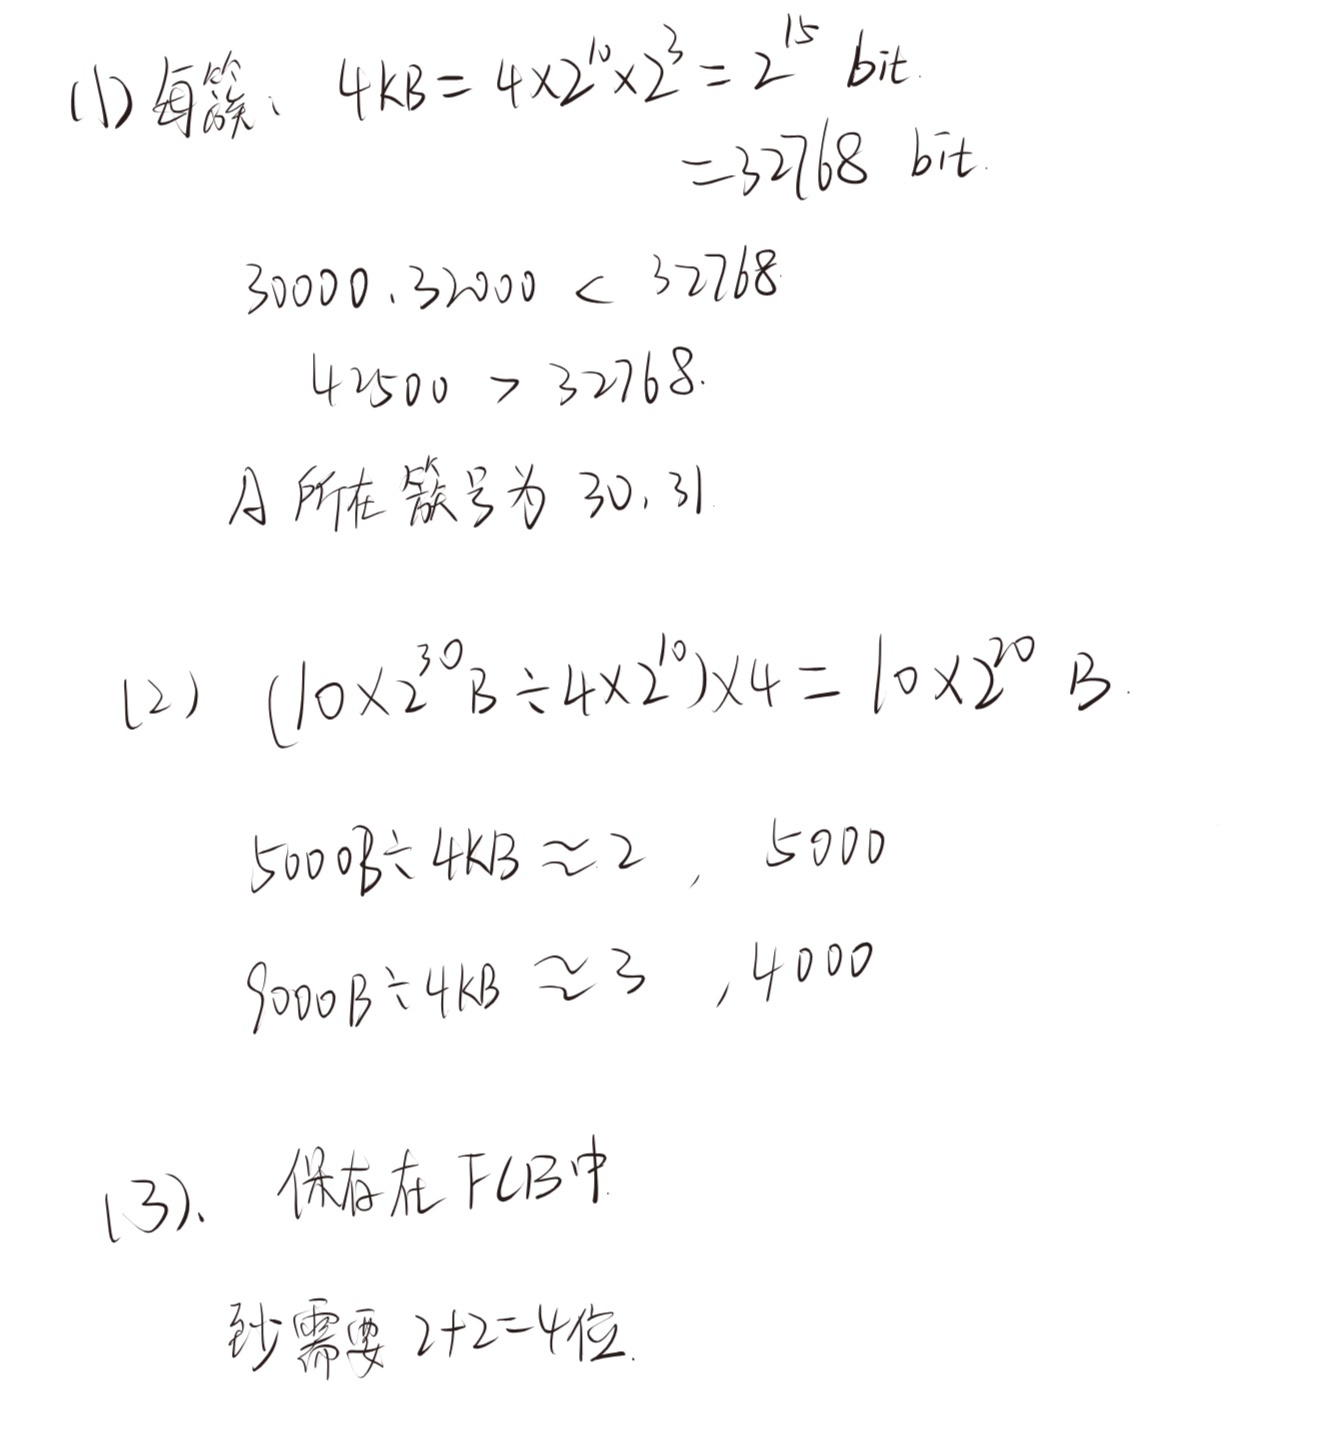 (1) 每簇、 4KB = 4×2¹⁰×2³ = 2¹⁵ bit.
= 32768 bit.
30000、32000 < 32768
42500 > 32768.
A 所在簇号为 30、31
(2) (10×2³⁰B÷4×2¹⁰)×4 = 10×2²⁰ B.
5000B÷4KB ≈ 2 , 5000
9000B÷4KB ≈ 3 , 4000
(3)、 保存在FCB中
至少需要 2+2=4位.